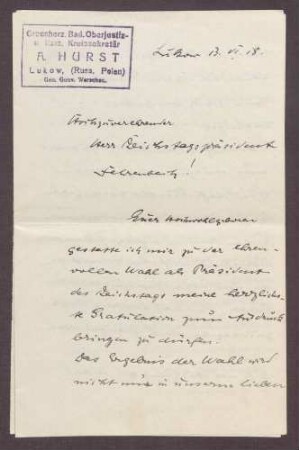 Grossherz. Bad. Oberjustiz-
u. Kais. Kreissekretär
A. HURST
Lukow, (Russ. Polen)
Gen. Gouv. Warschau.
Lukow 13. VI. 18.
Hochzuverehrender
Herr Reichstagspräsident
Fehrenbach!
Euer Hochwohlgeboren
gestatte ich mir zu der ehren-
vollen Wahl als Präsident
des Reichstags meine herzlich-
ste Gratulation zum Ausdruck
bringen zu dürfen.
Das Ergebnis der Wahl wird
nicht nur in unserem lieben